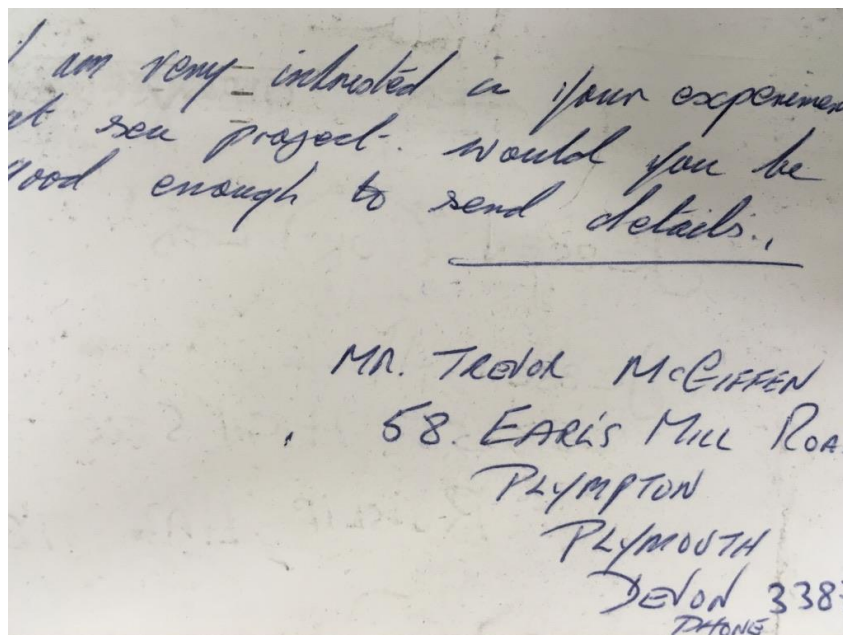 I am very intrested in your experimen
at sea project. would you be
good enough to send details.,
MR. TREVOR McGIFFEN
58. EARL'S MILL ROA
PLYMPTON
PLYMOUTH
DEVON 338
PHONE